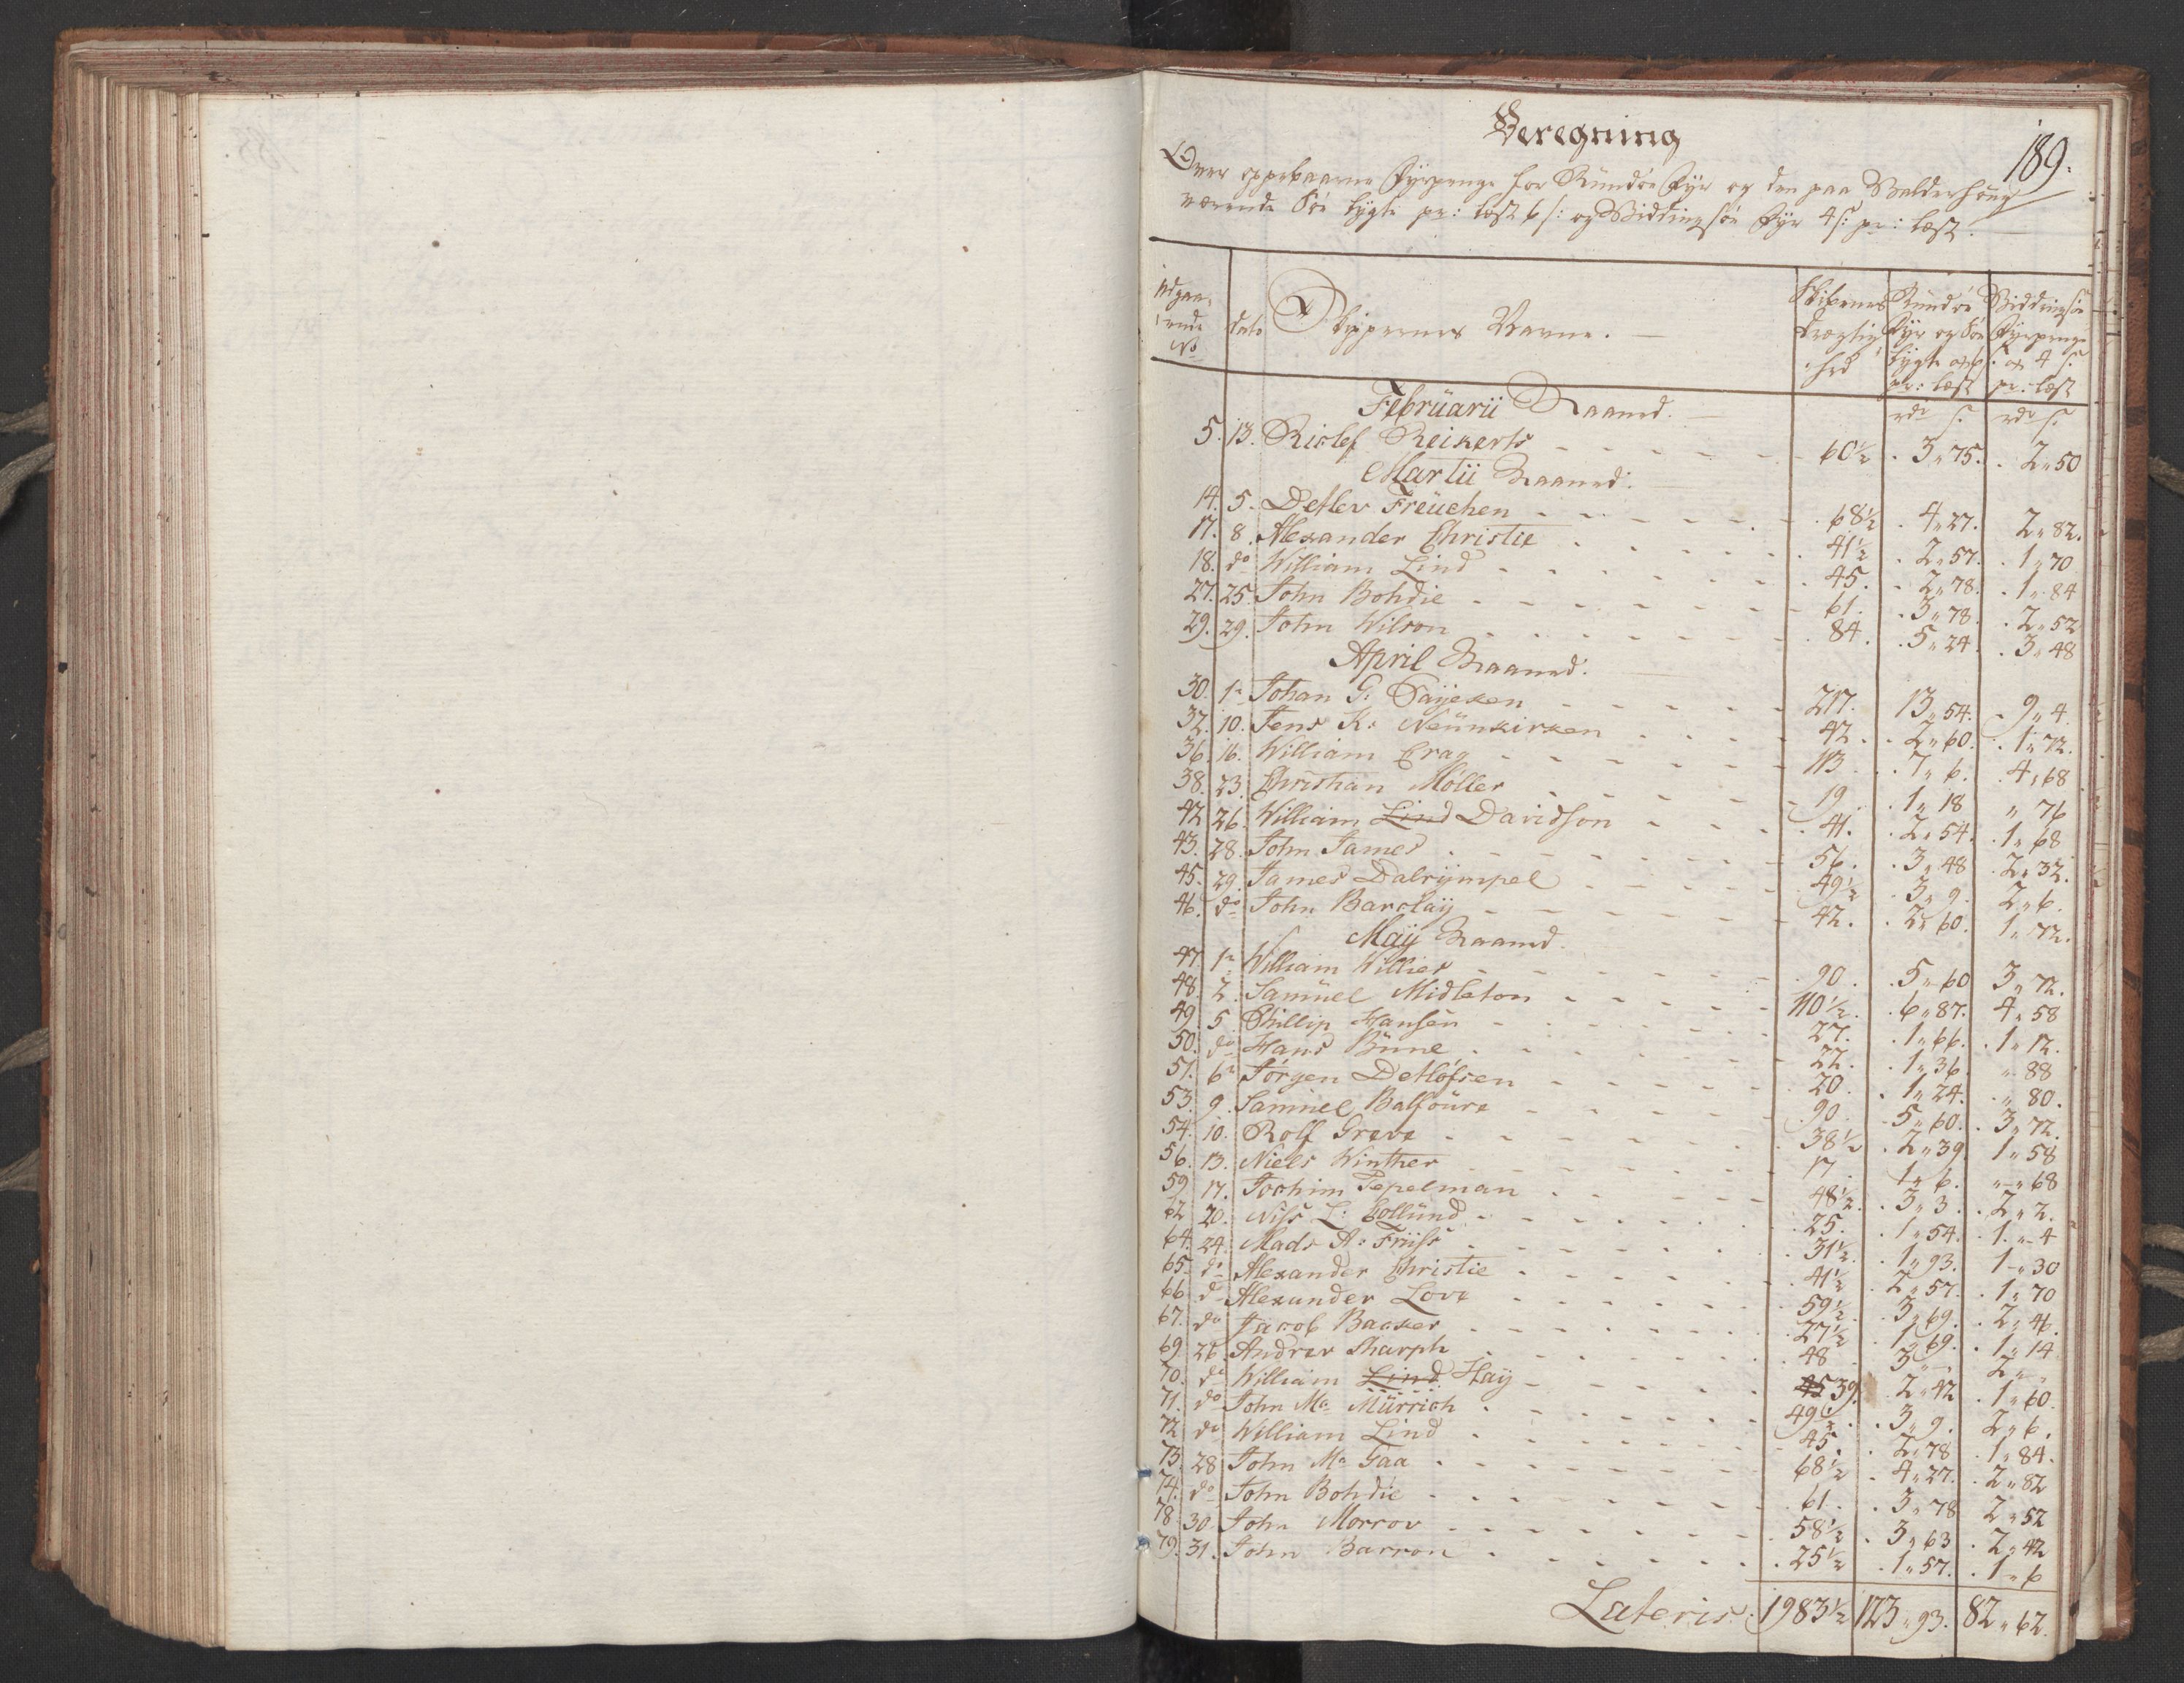 189.
Beregning
Over oppebaarne Fyrpenge for Rundøe Fyr og den paa Valderhoug
værende Søe Lygte pr: Læst 6 s: og Viddingsøe Fyr 4 s: pr: Læst.
Udgaaende No | dato | Skippernes Navne. | Skibenes Drægtighed | Rundøe Fyr og Søe Lygte a 6 s. pr: Læst | Viddingsøe Fyrpenge a 4 s. pr: Læst
Februarii Maaned. rdr s. rdr s.
5. 13. Riolef Reikerts 60½ 3 " 75. 2 " 50
Martii Maaned.
14. 5. Detlev Freuchen 68½ 4 " 27. 2 " 82.
17. 8. Alexander Christie 41½ 2 " 57. 1 " 70
18. do William Lind 45. 2 " 78. 1 " 84
27. 25. John Bohdie 61. 3 " 78. 2 " 52
29. 29. John Wilson 84. 5 " 24. 3 " 48
April Maaned.
30. 1n Johan G: Taijeken 217. 13 " 54. 9 " 4.
32. 10. Jens K: Neunkirken 42. 2 " 60. 1 " 72.
36. 16. William Crag 113 7 " 6. 4 " 68
38. 23. Christian Möller 19 1 " 18 " 76
42 26. William Lind Davidson 41. 2 " 54. 1 " 68
43. 28. John James 56. 3 " 48 2 " 32.
45. 29. James Dalrympel 49½ 3 " 9. 2 " 6.
46. do John Barclaij 42. 2 " 60. 1 " 72.
Maij Maaned.
47. 1n William Willies 90. 5 " 60 3 " 72.
48. 2. Samuel Midleton 110½ 6 " 87. 4 " 58
49. 5. Phillip Hansen 27. 1 " 66. 1 " 12.
50. do Hans Bünne 22. 1 " 36. " 88
51. 6n Jörgen Detlöfsen 20. 1 " 24. " 80.
53. 9. Samuel Balfoure 90. 5 " 60. 3 " 72.
54. 10. Rolf Greve 38½ 2 " 39. 1 " 58
56. 13. Niels Winther 17. 1 " 6. " 68
59. 17. Jochim Pepelman 48½ 3 " 3. 2 " 2.
62 20. Niss L: Collünd 25. 1 " 54. 1 " 4
64. 24. Mads A: Friiss 31½ 1 " 93. 1 " 30
65. do Alexander Christie 41½ 2 " 57. 1 " 70
66. do Alexander Love 59½ 3 " 69. 2 " 46.
67. do Jacob Backer 27½ 1 " 69. 1 " 14
69 26. Andrew Sharph 48 3 " 2 "
70. do William Lind Haij 45 39. 2 " 42 1 " 60.
71. do John Mc Mürrich 49½ 3 " 9. 2 " 6.
72 do William Lind 45. 2 " 78 1 " 84.
73. 28 John Mc Gaa 68½ 4 " 27. 2 " 82
74. do John Bohdie 61. 3 " 78 2 " 52
78. 30. John Morrov 58½ 3 " 63 2 " 42
79. 31. John Barron 25½ 1 " 57. 1 " 6
Lateris: 1983½ 123 " 93. 82 " 62.